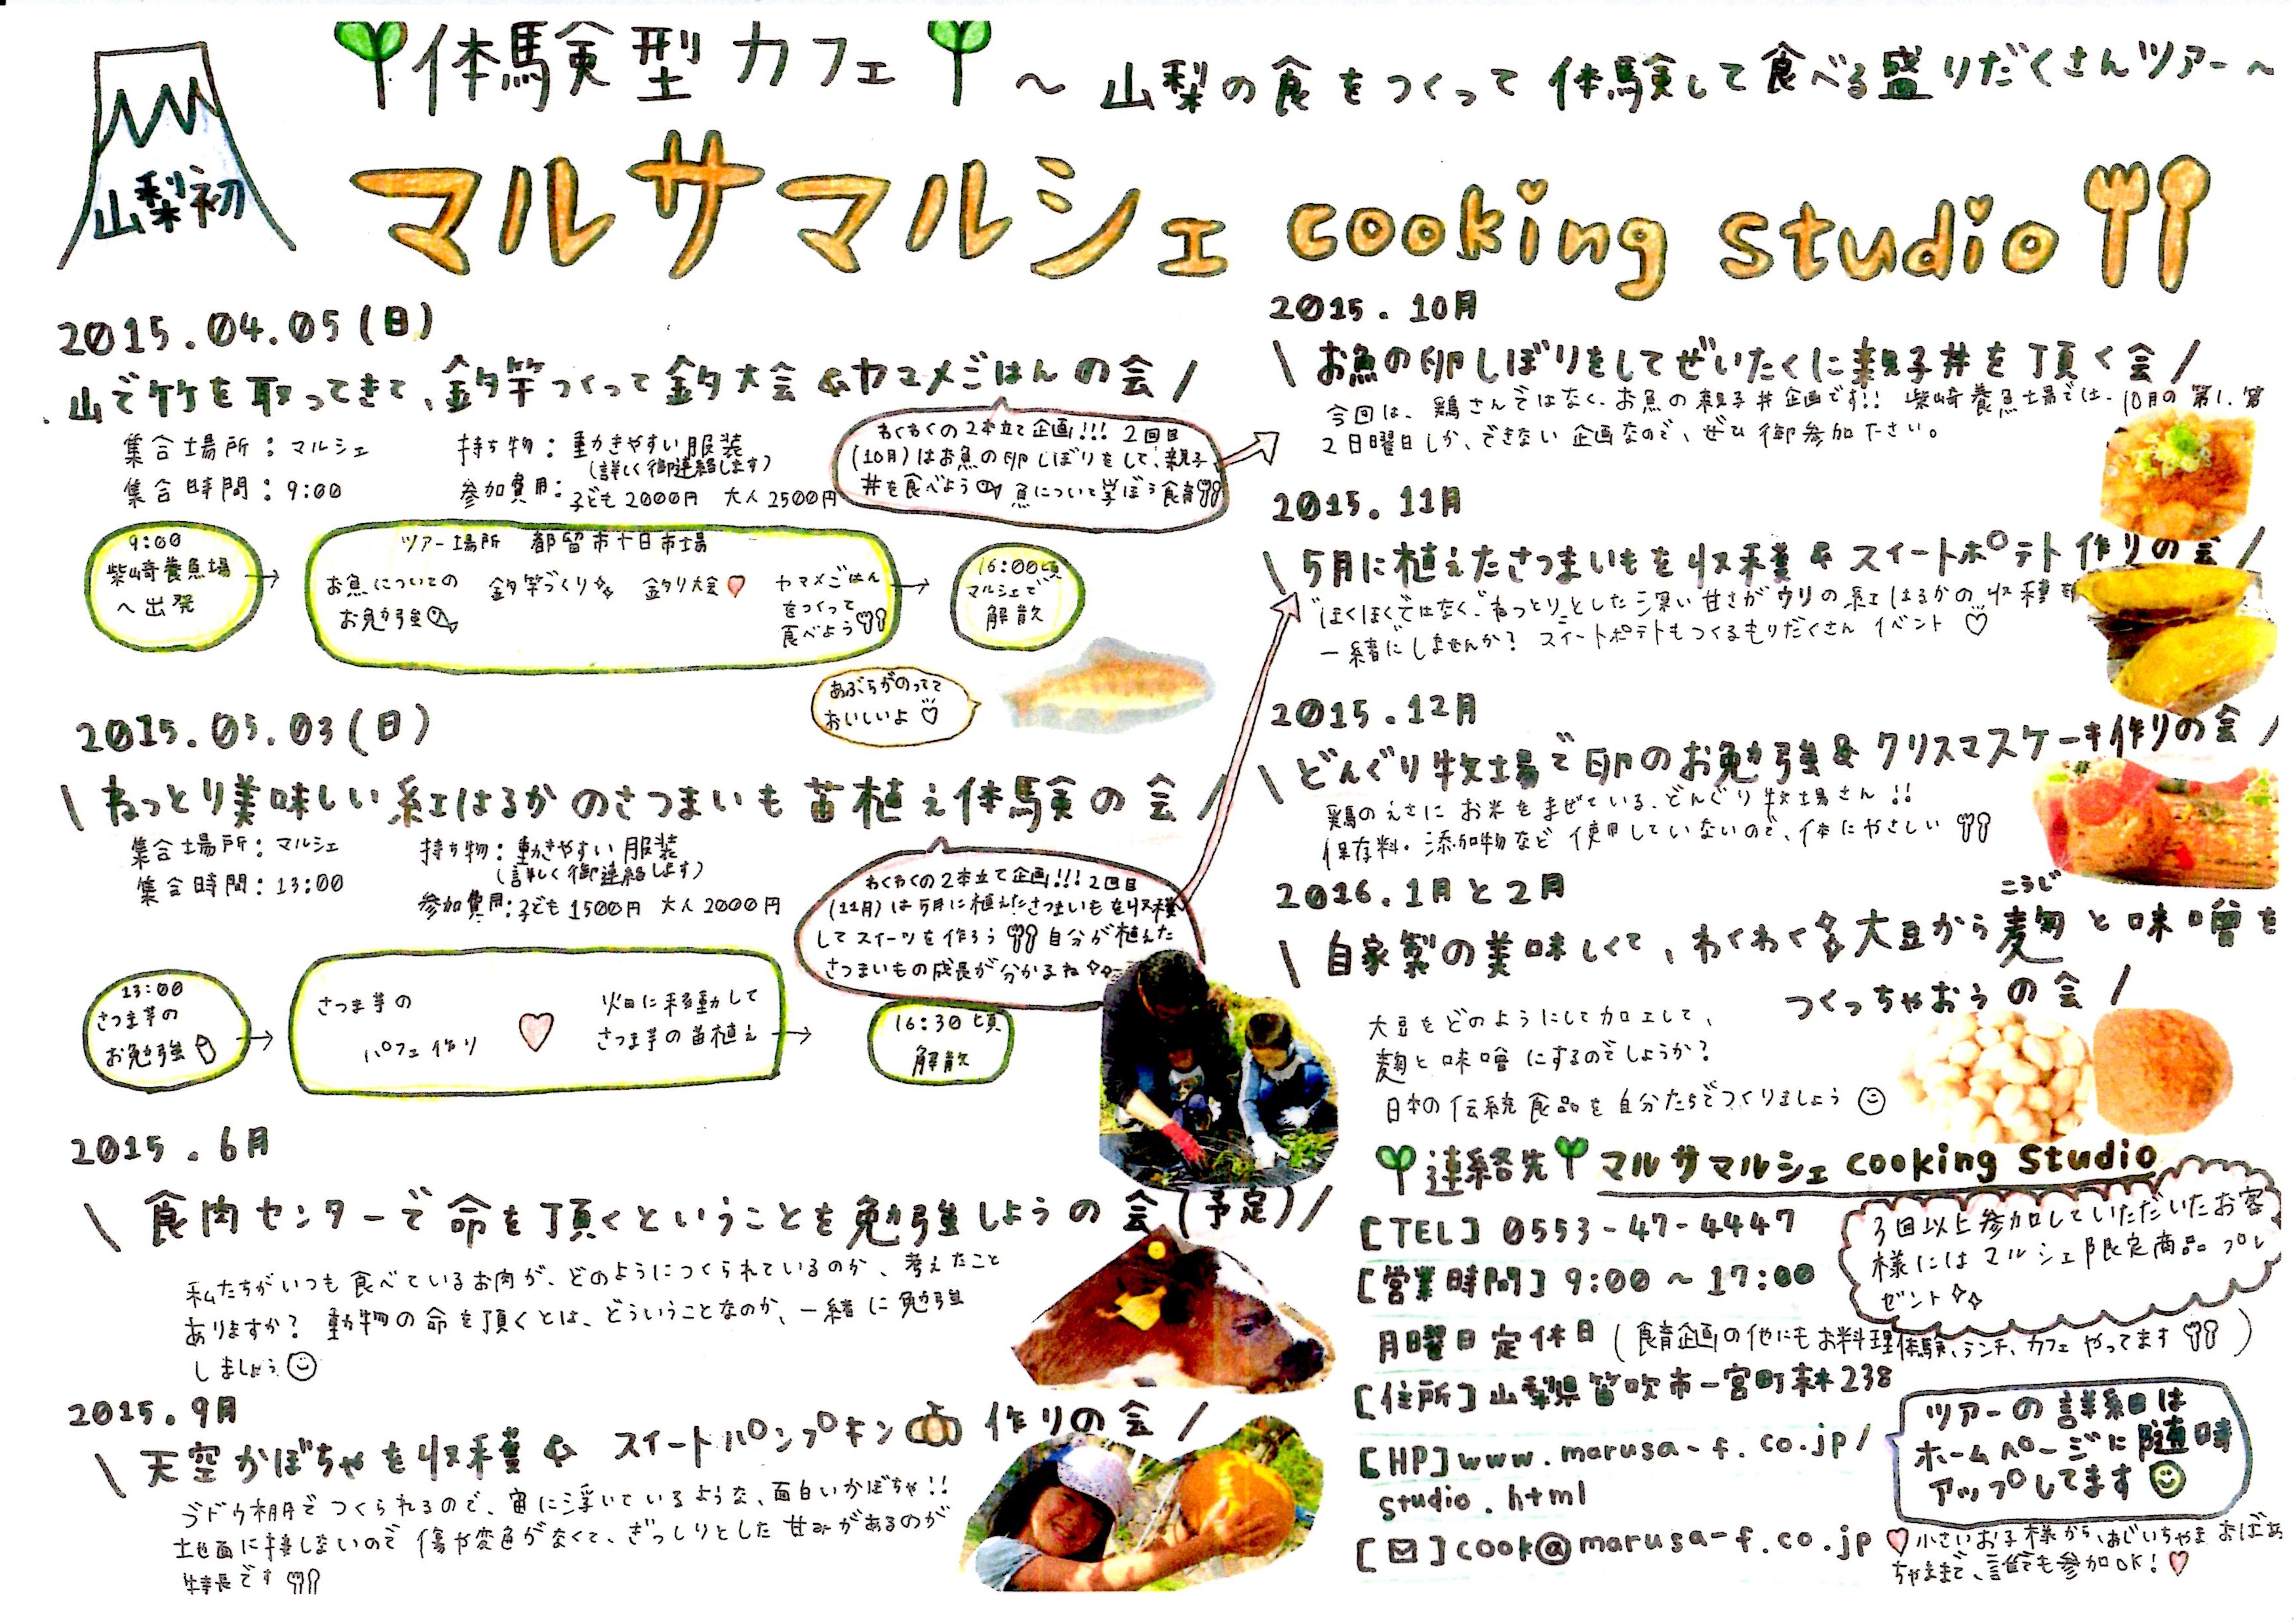 体験型カフェ
～山梨の食をつくって体験して食べる盛りだくさんツアー～
山梨初
マルサマルシェ cooking studio
2015.04.05(日)
山で竹を取ってきて、釣竿つくって釣大会&ヤマメごはんの会/
集合場所：マルシェ
集合時間：9:00
持ち物：動きやすい服装
(詳しく御連絡します)
参加費用：子ども2000円 大人2500円
わくわくの2本立て企画!!! 2回目
(10月)はお魚の卵しぼりをして、親子
丼を食べよう 魚について学ぼう食育
9:00
柴崎養魚場
へ出発
→
ツアー場所 都留市十日市場
お魚についての
お勉強
釣竿づくり
釣り大会
ヤマメごはん
をつくって
食べよう
→
16:00頃
マルシェで
解散
あぶらがのってて
おいしいよ♡
2015.05.03(日)
\ねっとり美味しい紅はるかのさつまいも苗植え体験の会/
集合場所：マルシェ
集合時間：13:00
持ち物：動きやすい服装
(詳しく御連絡します)
参加費用：子ども1500円 大人2000円
わくわくの2本立て企画!!! 2回目
(11月)は5月に植えたさつまいもを収穫
してスイーツを作ろう 自分が植えた
さつまいもの成長が分かるね
13:00
さつま芋の
お勉強
→
さつま芋の
パフェ作り
畑に移動して
さつま芋の苗植え
→
16:30頃
解散
2015.6月
\食肉センターで命を頂くということを勉強しようの会(予定)/
私たちがいつも食べているお肉が、どのようにつくられているのか、考えたこと
ありますか？動物の命を頂くとは、どういうことなのか、一緒に勉強
しましょう
2015.9月
\天空かぼちゃを収穫& スイートパンプキン作りの会/
ブドウ棚でつくられるので、宙に浮いているような、面白いかぼちゃ!!
地面に接しないので傷や変色がなくて、ぎっしりとした甘みがあるのが
特長です
2015.10月
\お魚の卵しぼりをしてぜいたくに親子丼を頂く会/
今回は、鶏さんではなく、お魚の親子丼企画です!! 柴崎養魚場では、10月の第1、第
2日曜日しか、できない企画なので、ぜひ御参加下さい。
2015.11月
\5月に植えたさつまいもを収穫&スイートポテト作りの会/
"ほくほくではなく、ねっとり"とした深い甘さがウリの紅はるかの収穫を
一緒にしませんか？スイートポテトもつくるもりだくさんイベント♡
2015.12月
\どんぐり牧場で卵のお勉強&クリスマスケーキ作りの会/
鶏のえさにお米をまぜている、どんぐり牧場さん!!
保存料・添加物など使用していないので、体にやさしい
2016.1月と2月
こうじ
\自家製の美味しくて、わくわく大豆から麹と味噌を
つくっちゃおうの会/
大豆をどのようにして加工して、
麹と味噌にするのでしょうか？
日本の伝統食品を自分たちでつくりましょう
連絡先 マルサマルシェ cooking studio
[TEL] 0553-47-4447
[営業時間] 9:00～17:00
3回以上参加していただいたお客
様にはマルシェ限定商品プレ
ゼント
月曜日定休日(食育企画の他にもお料理体験、ランチ、カフェやってます)
[住所]山梨県笛吹市一宮町末木238
[HP]www.marusa-f.co.jp/
studio.html
[✉]cook@marusa-f.co.jp
ツアーの詳細は
ホームページに随時
アップしてます
♡小さいお子様から、おじいちゃま おばあ
ちゃままで、誰でも参加OK!♡